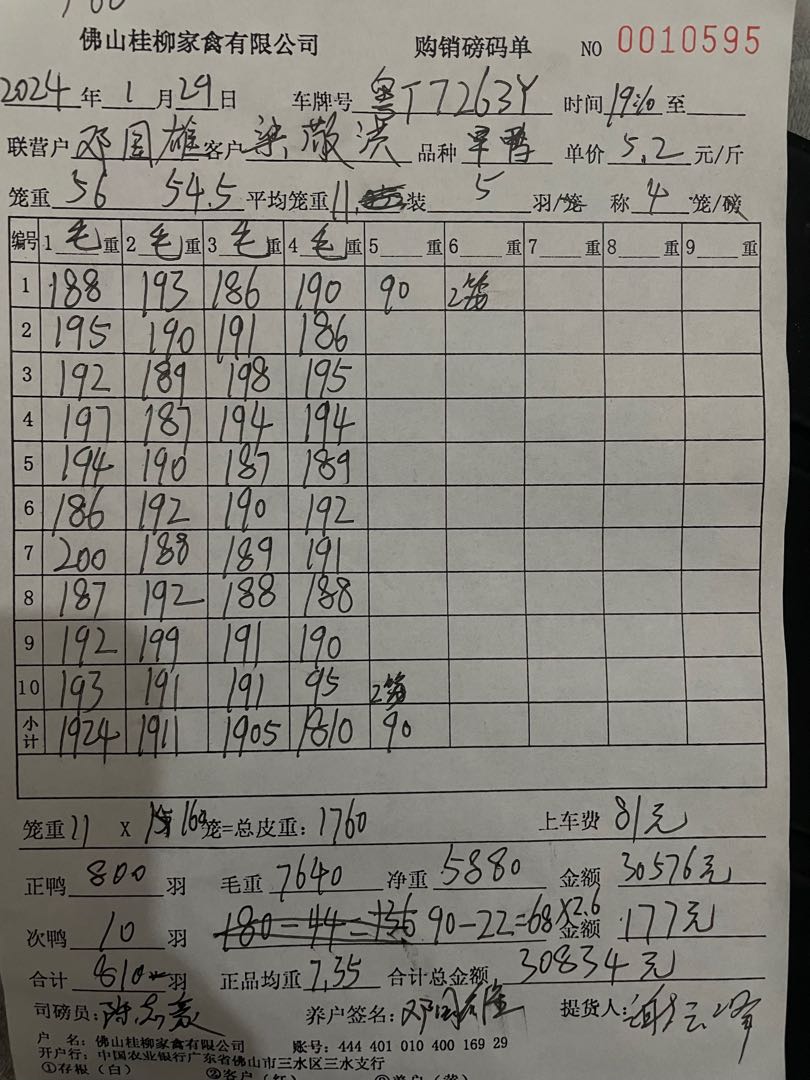 佛山桂柳家禽有限公司 购销磅码单 NO 0010595
2024年1月29日 车牌号 粤T7263Y 时间19:10至
联营户 邓国雄 客户 梁敬洪 品种 旱鸭 单价 5.2 元/斤
笼重 56 54.5 平均笼重 11. 装 5 羽/笼 称 4 笼/磅
编号 1 毛 重 2 毛 重 3 毛 重 4 毛 重 5 重 6 重 7 重 8 重 9 重
1 188 193 186 190 90 2笼
2 195 190 191 186
3 192 189 198 195
4 197 187 194 194
5 194 190 187 189
6 186 192 190 192
7 200 188 189 191
8 187 192 188 188
9 192 199 191 190
10 193 191 191 95 2笼
小计 1924 1911 1905 1810 90
笼重 11 X 160 笼=总皮重: 1760 上车费 81元
正鸭 800 羽 毛重 7640 净重 5880 金额 30576元
次鸭 10 羽 180-44=136 90-22=68×2.6 金额 177元
合计 810 羽 正品均重 7.35 合计总金额 30834元
司磅员: 陈志 养户签名: 邓国雄 提货人: 云峰
户 名: 佛山桂柳家禽有限公司 账号: 444 401 010 400 169 29
开户行: 中国农业银行广东省佛山市三水区三水支行
①存根(白) ②客户(红) ③养户(黄)